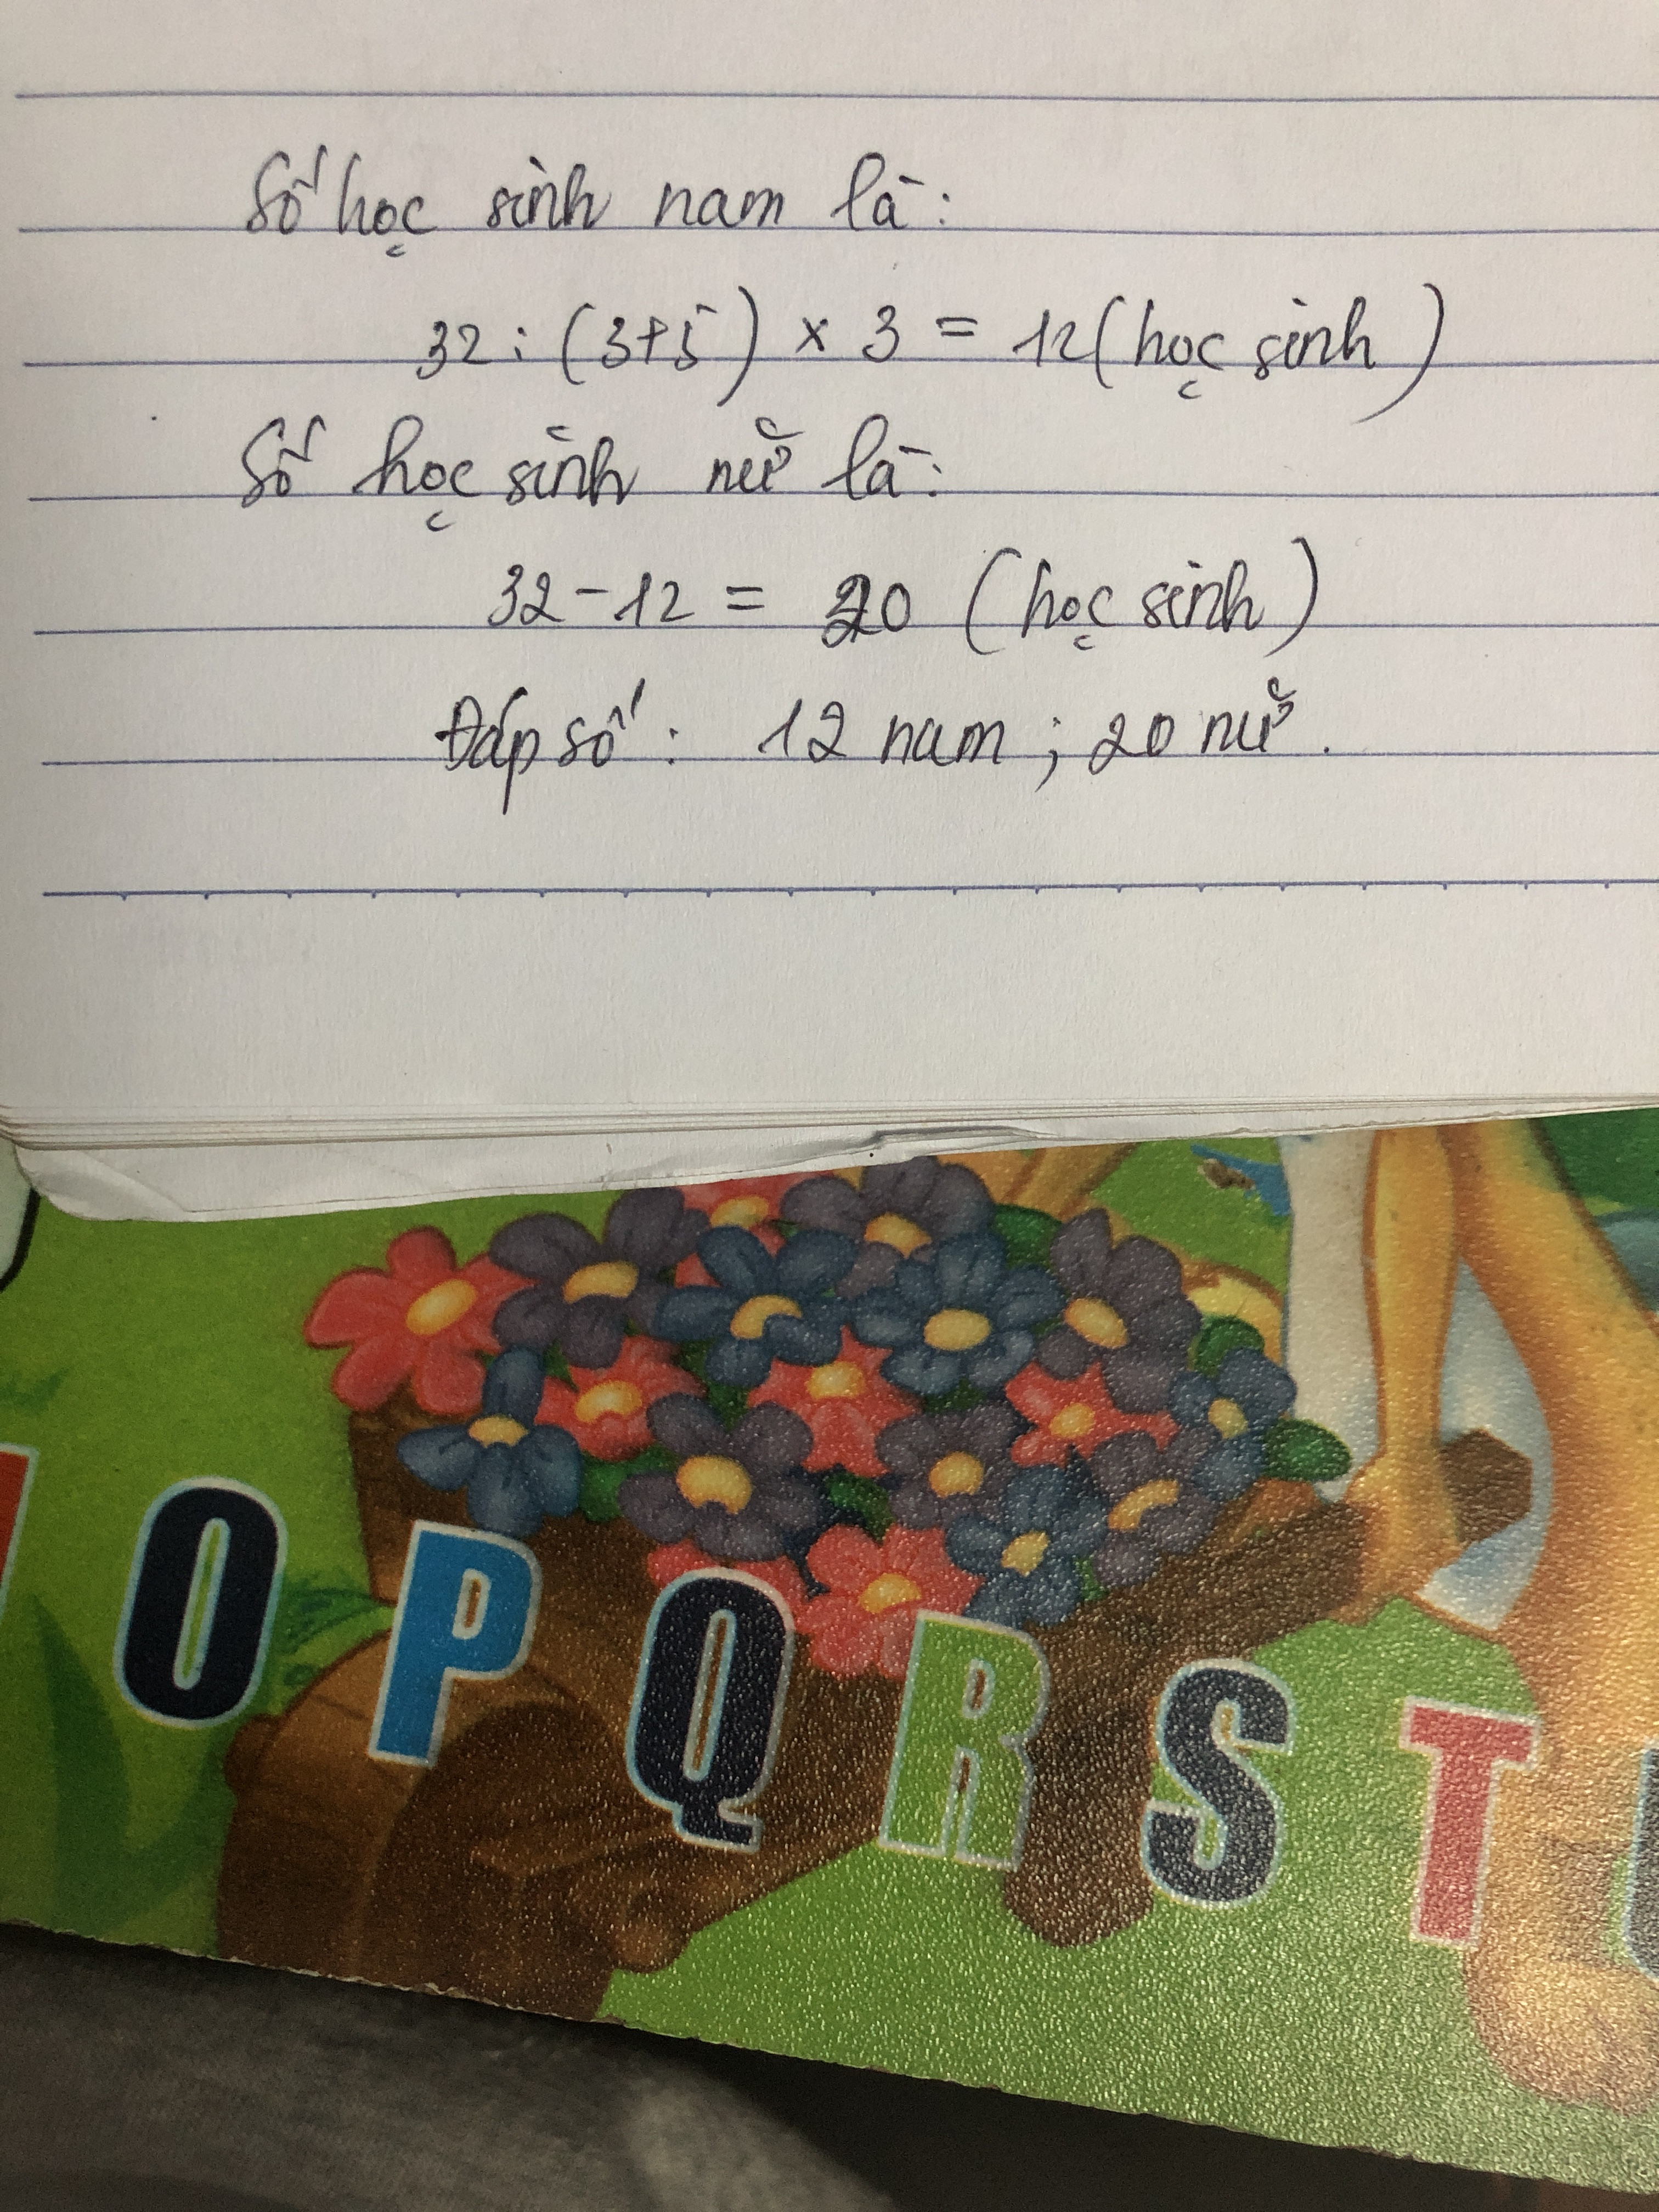 Số học sinh nam là:
32 : (3+5) x 3 = 12 (học sinh)
Số học sinh nữ là:
32 - 12 = 20 (học sinh)
Đáp số: 12 nam ; 20 nữ.
O P Q R S T